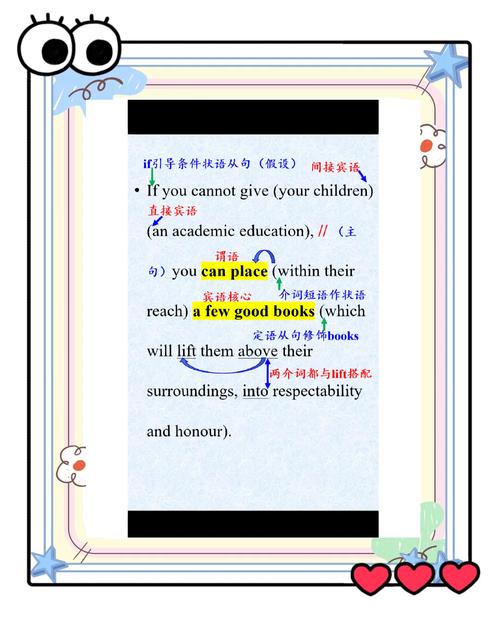 if引导条件状语从句（假设） 间接宾语
• If you cannot give (your children)
直接宾语
(an academic education), // （主
谓语
句）you can place (within their
宾语核心 介词短语作状语
reach) a few good books (which
定语从句修饰books
will lift them above their
两介词都与lift搭配
surroundings, into respectability
and honour).